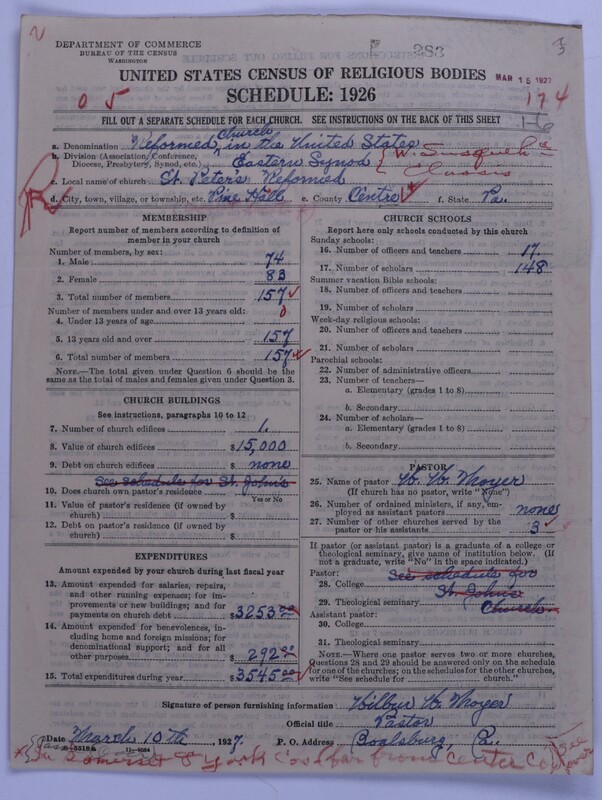 283
3
DEPARTMENT OF COMMERCE
BUREAU OF THE CENSUS
WASHINGTON
UNITED STATES CENSUS OF RELIGIOUS BODIES
MAR 15 1927
SCHEDULE: 1926
0 5
174
FILL OUT A SEPARATE SCHEDULE FOR EACH CHURCH. SEE INSTRUCTIONS ON THE BACK OF THIS SHEET
16
a. Denomination Reformed Church in the United States
b. Division (Association, Conference, Diocese, Presbytery, Synod, etc.) Eastern Synod { W. Susqueh'a Classis
c. Local name of church St. Peter's Reformed
d. City, town, village, or township, etc. Pine Hall e. County Centre f. State Pa.
MEMBERSHIP
Report number of members according to definition of
member in your church
Number of members, by sex:
1. Male 74
2. Female 83
3. Total number of members 157
Number of members under and over 13 years old:
4. Under 13 years of age 0
5. 13 years old and over 157
6. Total number of members 157
NOTE.—The total given under Question 6 should be the
same as the total of males and females given under Question 3.
CHURCH BUILDINGS
See instructions, paragraphs 10 to 12
7. Number of church edifices 1.
8. Value of church edifices $15,000
9. Debt on church edifices $ none
See schedule for St. John's
10. Does church own pastor's residence
Yes or No
11. Value of pastor's residence (if owned by
church) $
12. Debt on pastor's residence (if owned by
church) $
EXPENDITURES
Amount expended by your church during last fiscal year
13. Amount expended for salaries, repairs,
and other running expenses; for im-
provements or new buildings; and for
payments on church debt $3253.00
14. Amount expended for benevolences, in-
cluding home and foreign missions; for
denominational support; and for all
other purposes $ 292.00
15. Total expenditures during year $3545.00
CHURCH SCHOOLS
Report here only schools conducted by this church
Sunday schools:
16. Number of officers and teachers 17.
17. Number of scholars 148
Summer vacation Bible schools:
18. Number of officers and teachers
19. Number of scholars
Week-day religious schools:
20. Number of officers and teachers
21. Number of scholars
Parochial schools:
22. Number of administrative officers
23. Number of teachers—
a. Elementary (grades 1 to 8)
b. Secondary
24. Number of scholars—
a. Elementary (grades 1 to 8)
b. Secondary
PASTOR
25. Name of pastor W. W. Moyer
(If church has no pastor, write "None")
26. Number of ordained ministers, if any, em-
ployed as assistant pastors none
27. Number of other churches served by the
pastor or his assistants 3
If pastor (or assistant pastor) is a graduate of a college or
theological seminary, give name of institution below. (If
not a graduate, write "No" in the space indicated.)
Pastor:
28. College See schedule for
29. Theological seminary St. Johns Church
Assistant pastor:
30. College
31. Theological seminary
NOTE.—Where one pastor serves two or more churches,
Questions 28 and 29 should be answered only on the schedule
for one of the churches; on the schedules for the other churches,
write "See schedule for ______ church."
Signature of person furnishing information Wilbur W. Moyer
Official title Pastor
Date March 10th, 1927. P. O. Address Boalsburg, Pa.
Somerset & York Co's far from Center Co